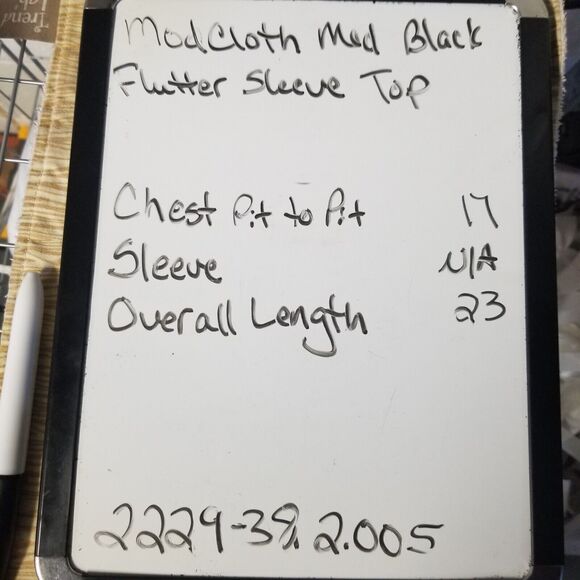 ModCloth Med Black
Flutter Sleeve Top
Chest Pit to Pit 17
Sleeve N/A
Overall Length 23
2229-38. 2.005